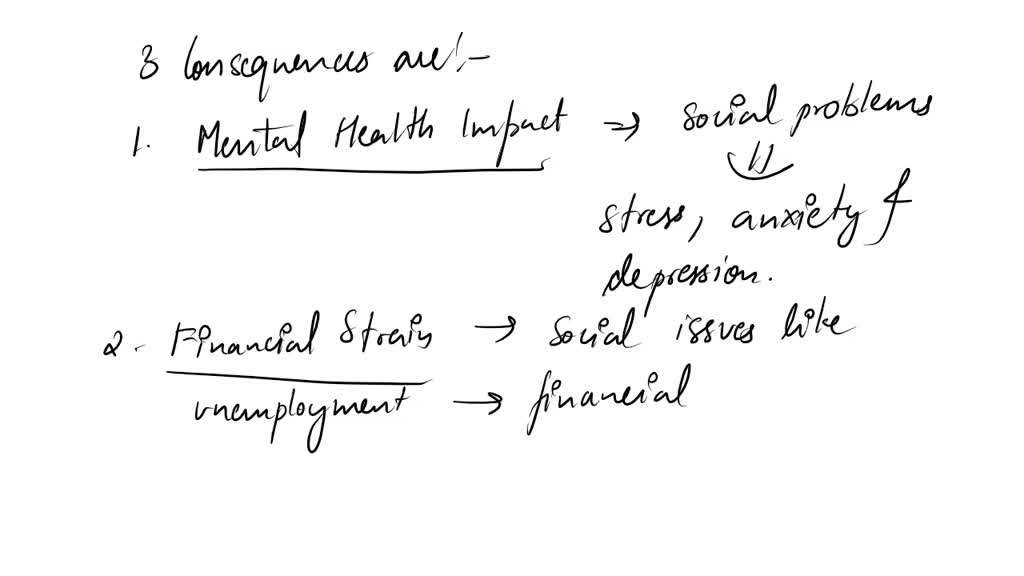 3 Consequences are:-
1. Mental Health Impact ⇒ social problems
⇓
stress, anxiety &
depression.
2. Financial Strain → social issues like
unemployment → financial